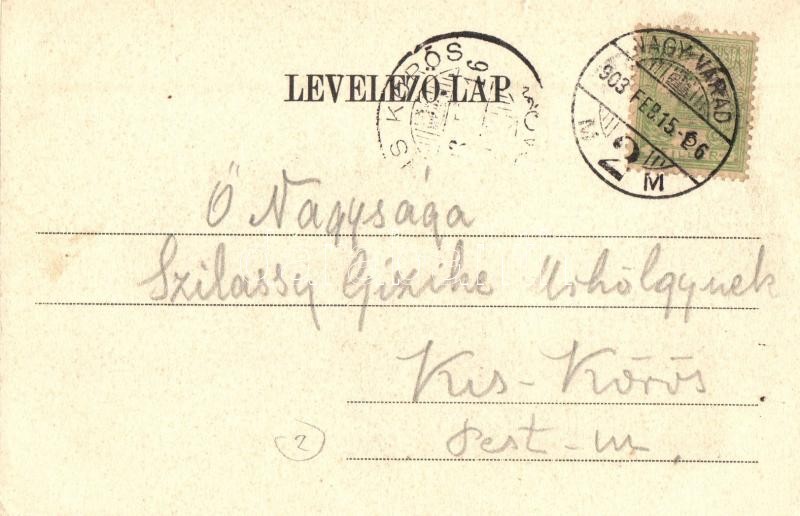 LEVELEZŐ-LAP
NAGY-VÁRAD
903 FEB.15
M 2 M
KŐRÖS
Ő Nagysága
Szilassy Gizike Urhölgynek
Kis-Kőrös
Pest-m.
2